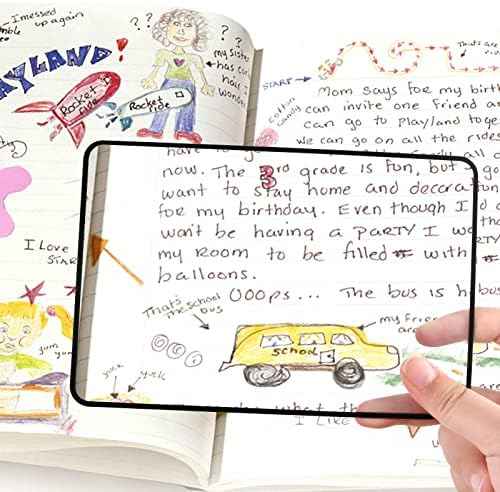 I messed
up again
PLAYLAND!
Rocket
ride
Rocket
ride
? ?
? ?
my sister
has cur
hair
wonder
START
That's
Cotton
candy
Mom says for my birth
can invite one friend a
can go to Playland toge
we can go on all the rides
now. The 3rd grade is fun, but
want to stay home and decorat
for my birthday. Even though I
won't be having a PARTY I
my ROOM to be filled with
balloons.
OOOps... The bus is h
That's
the school
bus
my Frie
are
school
I Love
STAR
yum
yum
yuck
yuck
what th
I LIKE